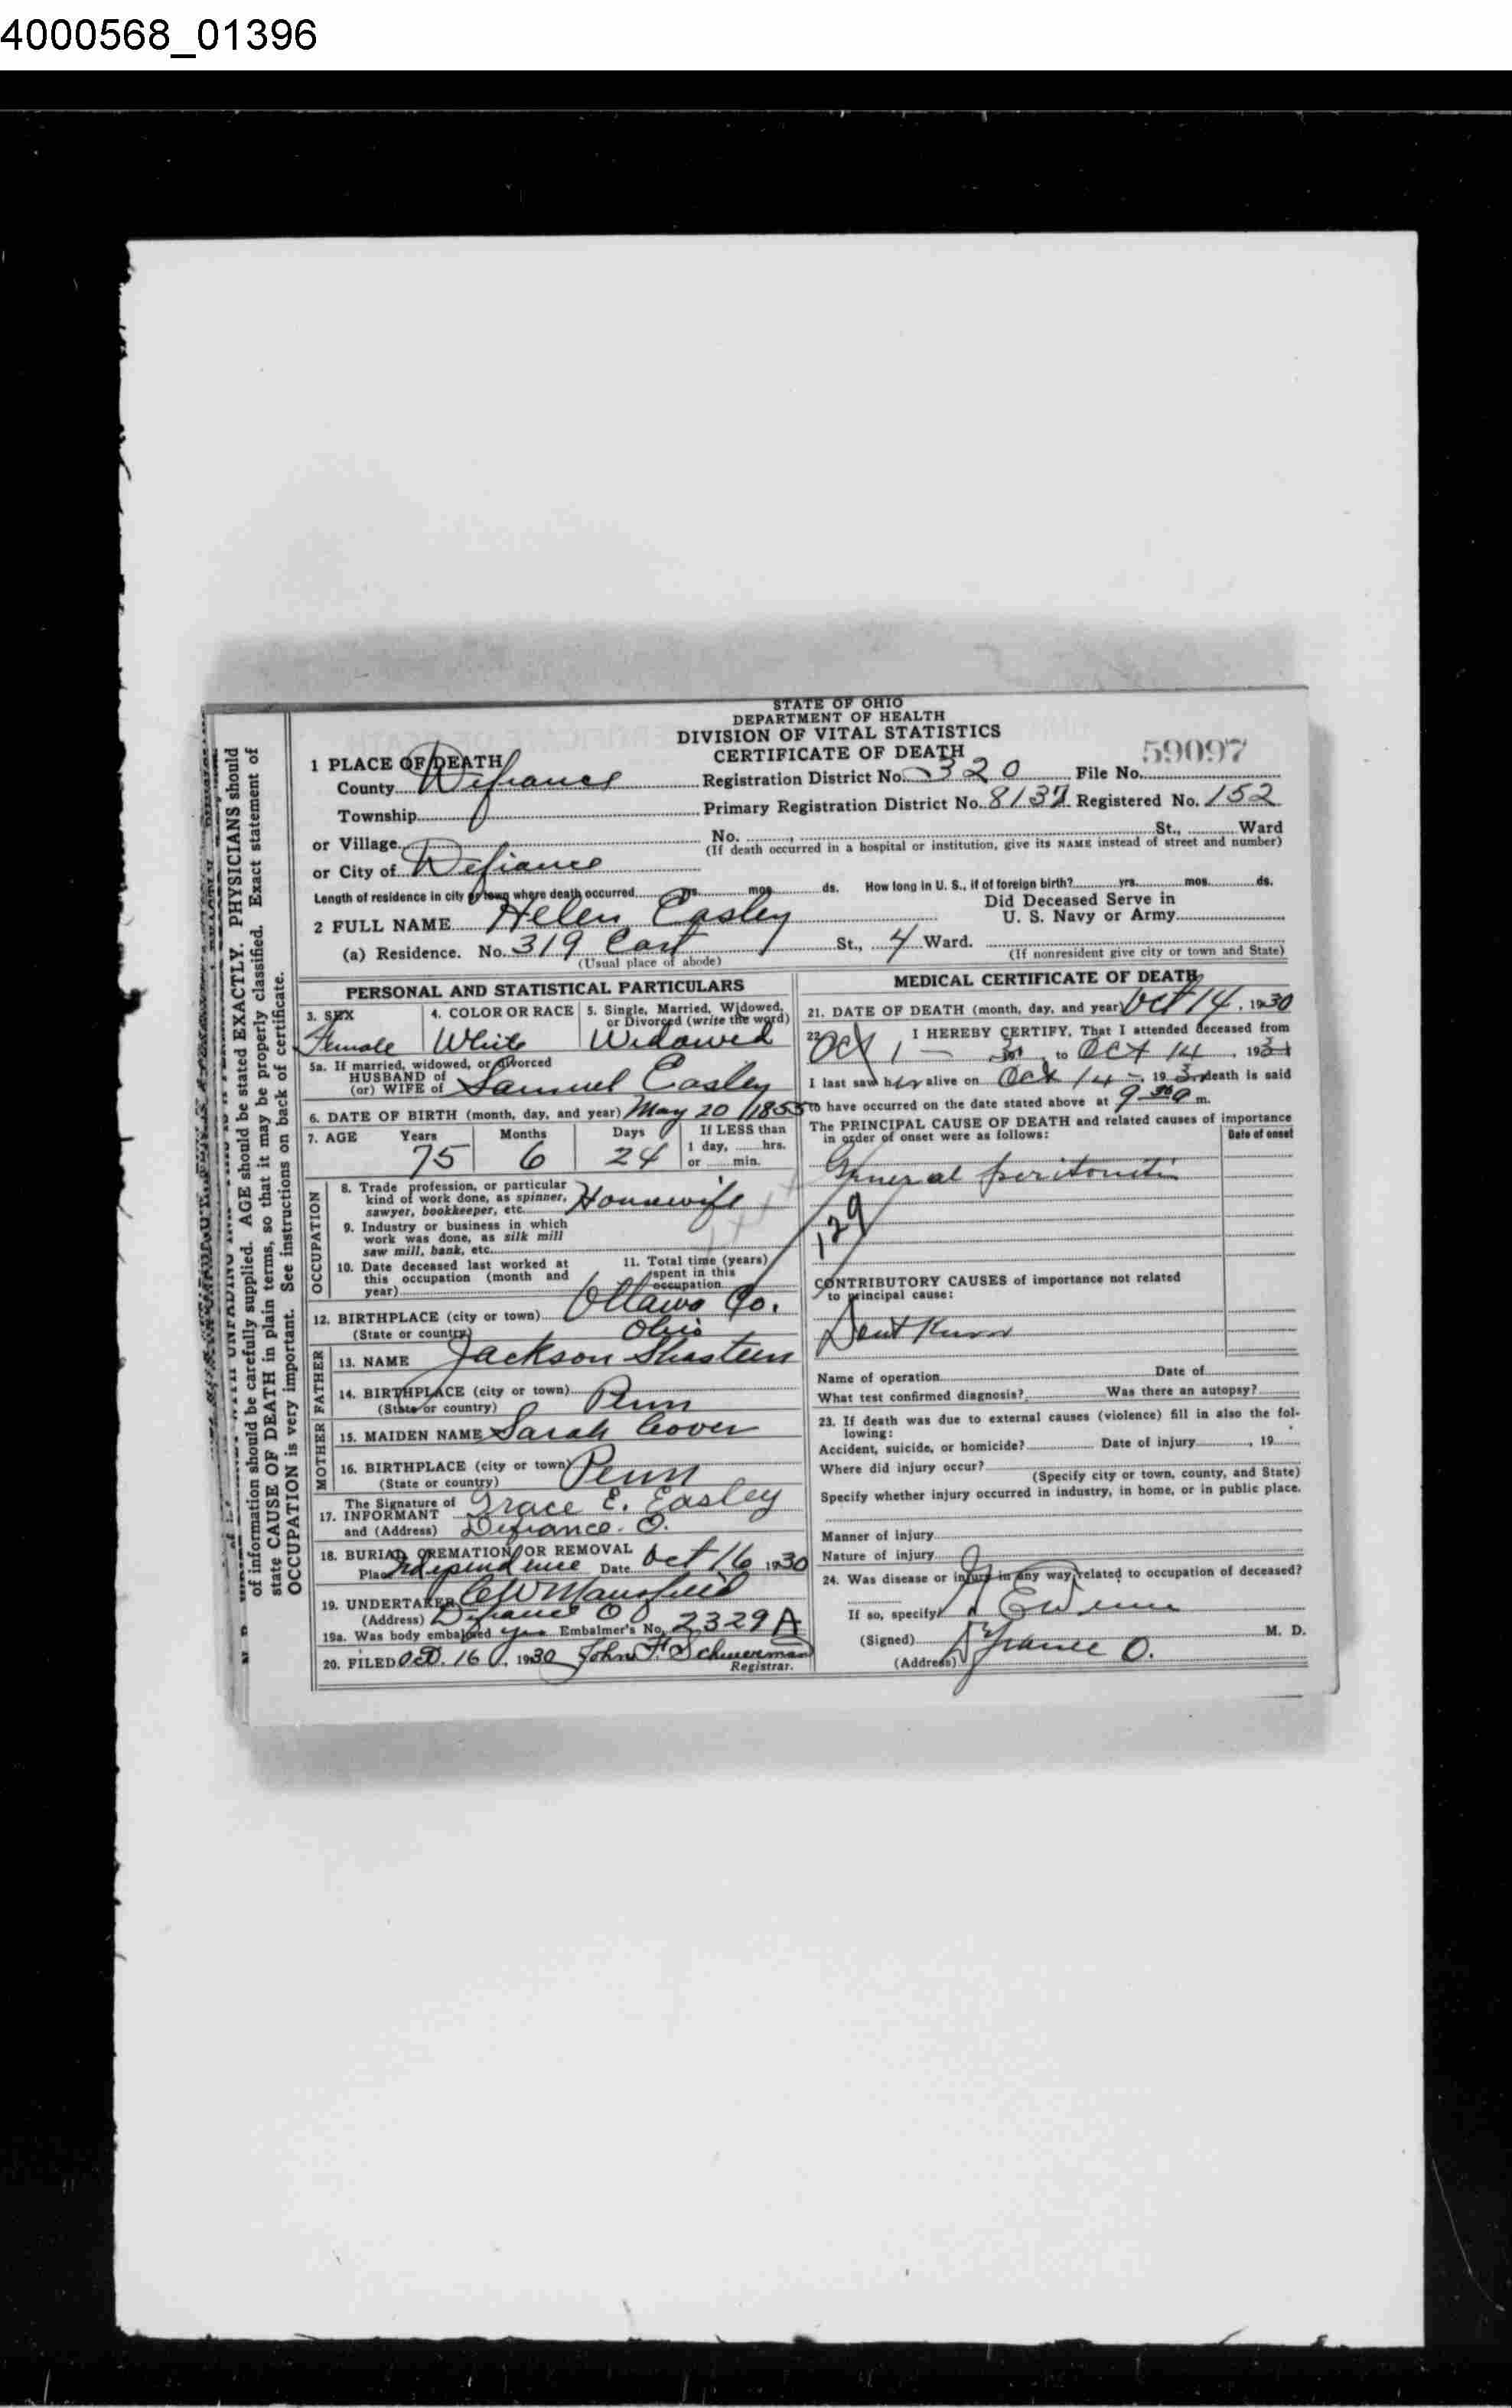 4000568_01396
STATE OF OHIO
DEPARTMENT OF HEALTH
DIVISION OF VITAL STATISTICS
CERTIFICATE OF DEATH
59097
1 PLACE OF DEATH
County Defiance Registration District No. 320 File No.
Township Primary Registration District No. 8137 Registered No. 152
or Village No. St., Ward
(If death occurred in a hospital or institution, give its NAME instead of street and number)
or City of Defiance
Length of residence in city or town where death occurred yrs. mos. ds. How long in U. S., if of foreign birth? yrs. mos. ds.
2 FULL NAME Helen Easley
Did Deceased Serve in
U. S. Navy or Army
(a) Residence. No. 319 East St., 4 Ward.
(Usual place of abode) (If nonresident give city or town and State)
PERSONAL AND STATISTICAL PARTICULARS
3. SEX
Female
4. COLOR OR RACE
White
5. Single, Married, Widowed,
or Divorced (write the word)
Widowed
5a. If married, widowed, or divorced
HUSBAND of
(or) WIFE of Samuel Easley
6. DATE OF BIRTH (month, day, and year) May 20 1855
7. AGE Years Months Days If LESS than
1 day, hrs.
or min.
75 6 24
OCCUPATION
8. Trade, profession, or particular
kind of work done, as spinner,
sawyer, bookkeeper, etc. Housewife
9. Industry or business in which
work was done, as silk mill
saw mill, bank, etc.
10. Date deceased last worked at
this occupation (month and
year)
11. Total time (years)
spent in this
occupation
12. BIRTHPLACE (city or town) Ottawa Co.
(State or country) Ohio
FATHER
13. NAME Jackson Shasteen
14. BIRTHPLACE (city or town) Penn
(State or country)
MOTHER
15. MAIDEN NAME Sarah Cover
16. BIRTHPLACE (city or town) Penn
(State or country)
17. The Signature of
INFORMANT Grace E. Easley
and (Address) Defiance. O.
18. BURIAL, CREMATION, OR REMOVAL
Place Independence Date Oct 16 1930
19. UNDERTAKER C W Mansfield
(Address) Defiance O
19a. Was body embalmed yes Embalmer's No. 2329 A
20. FILED Oct. 16, 1930 John F. Schuerman
Registrar.
MEDICAL CERTIFICATE OF DEATH
21. DATE OF DEATH (month, day, and year) Oct 14, 1930
22. I HEREBY CERTIFY, That I attended deceased from
Oct 1 - to Oct 14, 193
I last saw her alive on Oct 14 - 193 death is said
to have occurred on the date stated above at 9 30 a m.
The PRINCIPAL CAUSE OF DEATH and related causes of importance
in order of onset were as follows:
Date of onset
General peritonitis
129
CONTRIBUTORY CAUSES of importance not related
to principal cause:
Name of operation Date of
What test confirmed diagnosis? Was there an autopsy?
23. If death was due to external causes (violence) fill in also the fol-
lowing:
Accident, suicide, or homicide? Date of injury , 19
Where did injury occur?
(Specify city or town, county, and State)
Specify whether injury occurred in industry, in home, or in public place.
Manner of injury
Nature of injury
24. Was disease or injury in any way related to occupation of deceased?
If so, specify
(Signed) M. D.
(Address) Defiance O.
of information should be carefully supplied. AGE should be stated EXACTLY. PHYSICIANS should
state CAUSE OF DEATH in plain terms, so that it may be properly classified. Exact statement of
OCCUPATION is very important. See instructions on back of certificate.